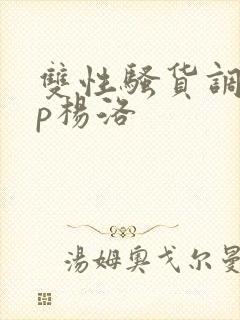 雙性騷貨調
p楊洛
湯姆奧戈尔曼